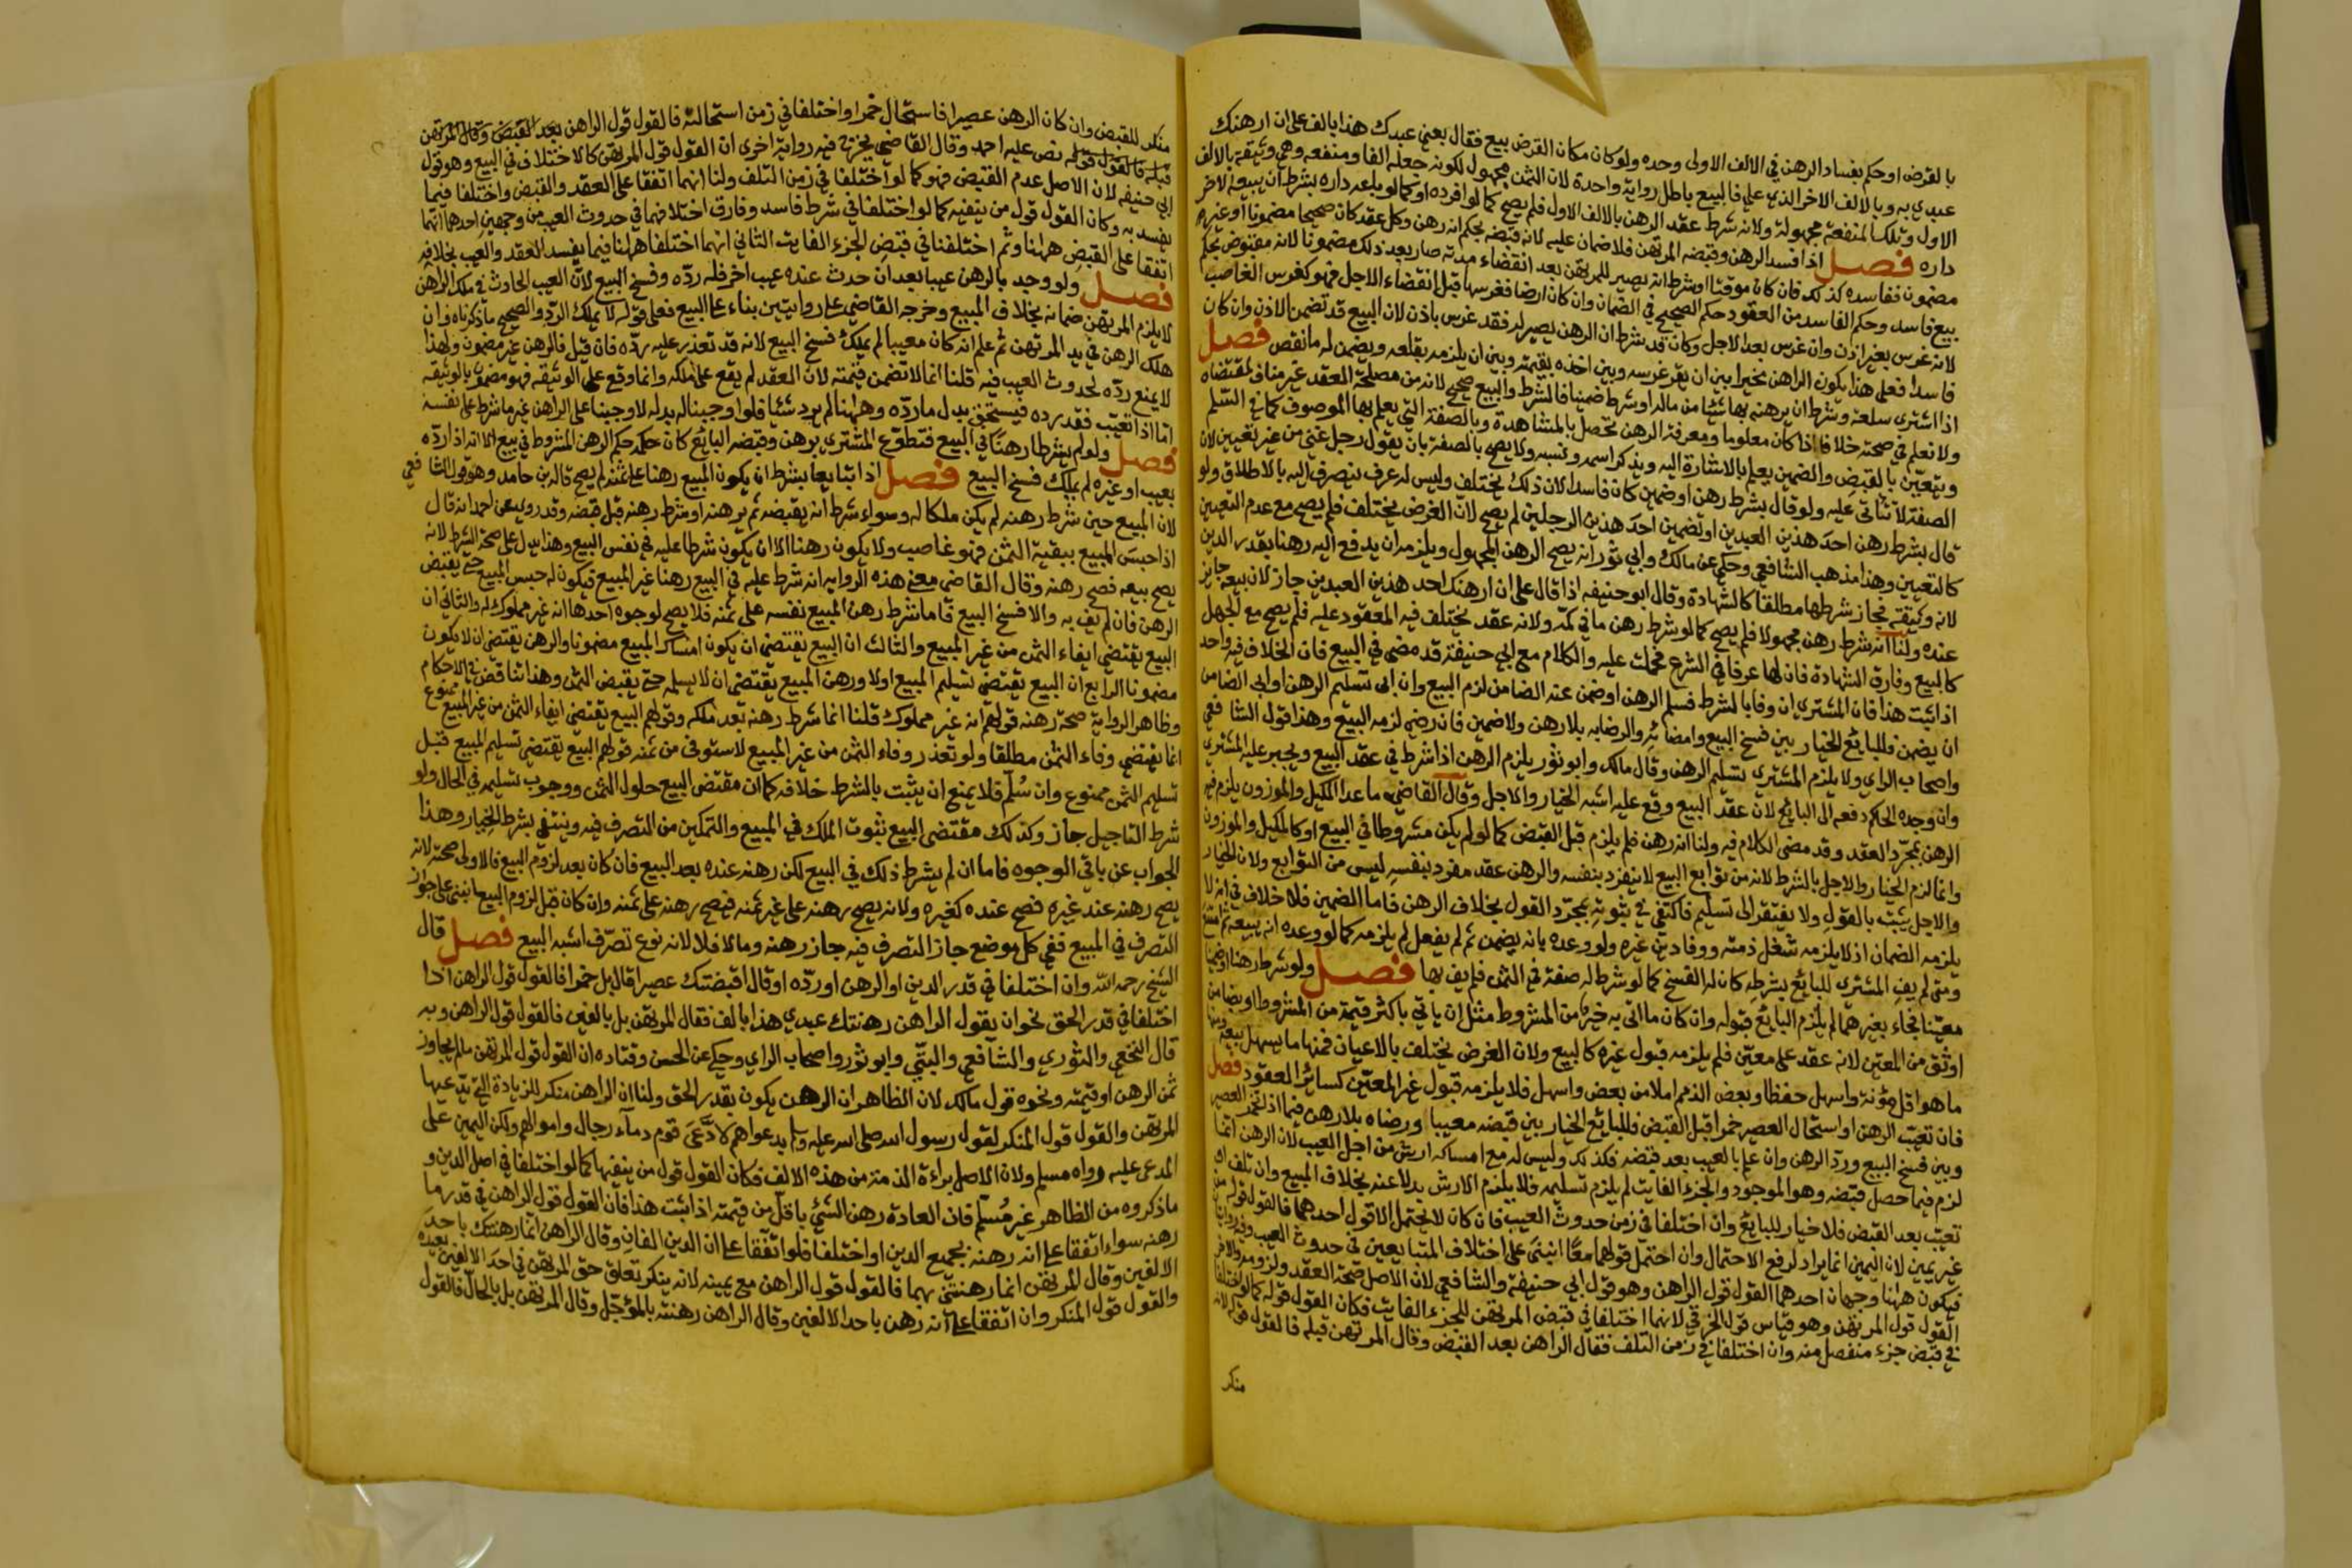 بالقرض او حكم بفساد الرهن في الالف الاولى وحده ولو كان مكان القرض بيع فقال بعني عبدك هذا بالف على ان ارهنك
عبدي به وبالالف الاخر الذي علي فالبيع باطل رواية واحدة لان الثمن مجهول لكونه جعله الفا ومنفعه وهي وثيقة بالالف
الاول وتلك المنفعة مجهولة ولانه شرط عقد الرهن بالالف الاول فلم يصح كما لو افرده او كما لو باعه داره بشرط ان يبيعه الاخر
داره فصل اذا فسد الرهن وقبضه المرتهن فلا ضمان عليه لانه قبضه بحكم انه رهن وكل عقد كان صحيحا مضمونا او غير
مضمون ففاسده كذلك فان كان موقتا او شرط انه يصير للمرتهن بعد انقضاء مدته صار بعد ذلك مضمونا لانه مقبوض بحكم
بيع فاسد وحكم الفاسد من العقود حكم الصحيح في الضمان وان كان ارضا فغرسها قبل انقضاء الاجل فهو كغرس الغاصب
لانه غرس بغير اذن وان غرس بعد الاجل وكان قد شرط ان الرهن يصير له فقد غرس باذن لان البيع قد تضمن الاذن وان كان
فاسدا فعلى هذا يكون الراهن مخيرا بين ان يقر غرسه وبين اخذه بقيمته وبين ان يلزمه بقلعه ويضمن له ما نقص فصل
اذا اشترى سلعة وشرط ان يرهنه بها شيئا من ماله او شرط ضمينا فالشرط والبيع صحيح لانه من مصلحة العقد غير مناف لمقتضاه
ولا نعلم في صحته خلافا اذا كان معلوما ومعرفة الرهن تحصل بالمشاهدة وبالصفة التي يعلم بها الموصوف كما في السلم
ويتعين بالقبض والضمين يعلم بالاشارة اليه ويذكر اسمه ونسبه ولا يصح بالصفة بان يقول رجل غني من غير تعيين لان
الصفة لا تاتي عليه ولو قال بشرط رهن او ضمين كان فاسدا لان ذلك يختلف وليس له عرف ينصرف اليه بالاطلاق ولو
قال بشرط رهن احد هذين العبدين او تضمين احد هذين الرجلين لم يصح لان الغرض يختلف فلم يصح مع عدم التعيين
كالتعيين وهذا مذهب الشافعي وحكي عن مالك وابي ثور انه يصح الرهن المجهول ويلزمه ان يدفع اليه رهنا بقدر الدين
لانه وثيقة فجاز شرطها مطلقا كالشهادة وقال ابو حنيفه اذا قال على ان ارهنك احد هذين العبدين جاز لان بيعه جايز
عنده ولنا انه شرط رهن مجهولا فلم يصح كما لو شرط رهن ما في كمه ولانه عقد يختلف فيه المعقود عليه فلم يصح مع الجهل
كالبيع وفارق الشهادة فان لها عرفا في الشرع فحملت عليه والكلام مع ابي حنيفة قد مضى في البيع فان الخلاف فيه واحد
اذا ثبت هذا فان المشتري ان وفا بالشرط فسلم الرهن او ضمن عنه الضامن لزم البيع وان ابى تسليم الرهن او ابى الضامن
ان يضمن فللبائع الخيار بين فسخ البيع وامضائه والرضا به بلا رهن ولا ضمين فان رضي لزمه البيع وهذا قول الشافعي
واصحاب الراي ولا يلزم المشتري تسليم الرهن وقال مالك وابو ثور يلزم الرهن اذا شرط في عقد البيع ويجبر عليه المشتري
وان وجده الحكم دفعه الى البائع لان عقد البيع وقع عليه اشبه الخيار والاجل وقال القاضي ما عدا المكيل والموزون يلزم فيه
الرهن بمجرد العقد وقد مضى الكلام فيه ولنا انه رهن فلم يلزم قبل القبض كما لو لم يكن مشروطا في البيع او كالمكيل والموزون
وانما لزم الخيار والاجل بالشرط لانه من توابع البيع لا ينفرد بنفسه والرهن عقد مفرد بنفسه ليس من التوابع ولان الخيار
والاجل يثبت بالقول ولا يفتقر الى تسليم فاكتفي في ثبوته بمجرد القول بخلاف الرهن فاما الضمين فلا خلاف في انه لا
يلزمه الضمان اذ لا يلزمه شغل ذمته ووفا دين غيره ولو وعده بانه يضمن ثم لم يفعل لم يلزمه كما لو وعده انه يبيعه ثم امتنع
ومتى لم يف المشتري للبائع بشرطه كان له الفسخ كما لو شرط له صفة في الثمن فلم يف بها فصل ولو شرط رهنا او ضمينا
معينا فجاء بغيرهما لم يلزم البائع قبوله وان كان ما اتى به خيرا من المشروط مثل ان ياتي باكثر قيمة من المشروط او بضامن
اوثق من المعين لانه عقد على معين فلم يلزمه قبول غيره كالبيع ولان الغرض يختلف بالاعيان فمنها ما يسهل بيعه ومنها
ما هو اقل مؤنة واسهل حفظا وبعض الذمم املا من بعض واسهل فلا يلزمه قبول غير المعين كسائر العقود فصل
فان تعيب الرهن او استحال العصير خمرا قبل القبض فللبائع الخيار بين قبضه معيبا ورضاه بلا رهن فيما اذا تخمر العصير
وبين فسخ البيع ورد الرهن وان علم بالعيب بعد قبضه فكذلك وليس له مع امساكه ارش من اجل العيب لان الرهن انما
لزم فيما حصل قبضه وهو الموجود والجزء الفايت لم يلزم تسليمه فلا يلزم الارش بدلا عنه بخلاف المبيع وان تلف او
تعيب بعد القبض فلا خيار للبائع وان اختلفا في زمن حدوث العيب فان كان لا يحتمل الا قول احدهما فالقول قوله من
غير يمين لان اليمين انما يراد لرفع الاحتمال وان احتمل قولهما معا انبنى على اختلاف المتبايعين في حدوث العيب وفيه روايتان
فيكون ههنا وجهان احدهما القول قول الراهن وهو قول ابي حنيفة والشافعي لان الاصل صحة العقد ولزومه والاخر
القول قول المرتهن وهو قياس قول الخرقي لانهما اختلفا في قبض المرتهن للجزء الفايت فكان القول قوله كما لو اختلفا
في قبض جزء منفصل منه وان اختلفا في زمن التلف فقال الراهن بعد القبض وقال المرتهن قبله فالقول قوله لانه
منكر
منكر للقبض وان كان الرهن عصيرا فاستحال خمرا واختلفا في زمن استحالته فالقول قول الراهن بعد القبض وقال المرتهن
قبله فالقول قوله نص عليه احمد وقال القاضي يخرج فيه رواية اخرى ان القول قول المرتهن كالاختلاف في البيع وهو قول
ابي حنيفه لان الاصل عدم القبض فهو كما لو اختلفا في زمن التلف ولنا انهما اتفقا على العقد والقبض واختلفا فيما
يفسد به وكان القول قول من ينفيه كما لو اختلفا في شرط فاسد وفارق اختلافهما في حدوث العيب من وجهين احدهما انهما
اتفقا على القبض ههنا وثم اختلفا في قبض الجزء الفايت الثاني انهما اختلفا ههنا فيما يفسد العقد والعيب بخلافه
فصل ولو وجد بالرهن عيبا بعد ان حدث عنده عيب اخر فله رده وفسخ البيع لان العيب الحادث في ملك الراهن
لا يلزم المرتهن ضمانه بخلاف المبيع وخرجه القاضي على روايتين بناء على البيع فعلى قوله لا يملك الرد والصحيح ما ذكرناه وان
هلك الرهن في يد المرتهن ثم علم انه كان معيبا لم يملك فسخ البيع لانه قد تعذر عليه رده فان قيل فالرهن غير مضمون ولهذا
لا يمنع رده لحدوث العيب فيه قلنا انما لا تضمن قيمته لان العقد لم يقع على ملكه وانما وقع على الوثيقه فهو مضمون بالوثيقه
اما اذا تعيب فقد رده فيستحق بدل ما رده وههنا لم يرد شيئا فلو اوجبنا له بدله لاوجبنا على الراهن غير ما شرط على نفسه
فصل ولو لم يشرطا رهنا في البيع فتطوع المشتري برهن وقبضه البائع كان حكمه حكم الرهن المشروط في بيع الا انه اذا رده
بعيب او غيره لم يملك فسخ البيع فصل اذا تبايعا بشرط ان يكون المبيع رهنا على ثمنه لم يصح قاله ابن حامد وهو قول الشافعي
لان المبيع حين شرط رهنه لم يكن ملكا له وسواء شرط انه يقبضه ثم يرهنه او شرط رهنه قبل قبضه وقد روي عن احمد انه قال
اذا حبس المبيع ببقية الثمن فهو غاصب ولا يكون رهنا الا ان يكون شرطا عليه في نفس البيع وهذا يدل على صحة الشرط لانه
يصح بيعه فصح رهنه وقال القاضي معنى هذه الروايه انه شرط عليه في البيع رهنا غير المبيع فيكون له حبس المبيع حتى يقبض
الرهن فان لم يف به والا فسخ البيع فاما شرط رهن المبيع نفسه على ثمنه فلا يصح لوجوه احدها انه غير مملوك له والثاني ان
البيع يقتضي ايفاء الثمن من غير المبيع والثالث ان البيع يقتضي ان يكون امساك المبيع مضمونا والرهن يقتضي ان لا يكون
مضمونا الرابع ان البيع يقتضي تسليم المبيع اولا ورهن المبيع يقتضي ان لا يسلمه حتى يقبض الثمن وهذا تناقض في الاحكام
وظاهر الرواية صحة رهنه قولهم انه غير مملوك قلنا انما شرط رهنه بعد ملكه وقولهم البيع يقتضي ايفاء الثمن من غير المبيع ممنوع
انما يقتضي وفاء الثمن مطلقا ولو تعذر وفاء الثمن من غير المبيع لاستوفى من ثمنه قولهم البيع يقتضي تسليم المبيع قبل
تسليم الثمن ممنوع وان سلم فلا يمنع ان يثبت بالشرط خلافه كما ان مقتضى البيع حلول الثمن ووجوب تسليمه في الحال ولو
شرط التاجيل جاز وكذلك مقتضى البيع ثبوت الملك في المبيع والتمكين من التصرف فيه وينتفي بشرط الخيار وهذا
الجواب عن باقي الوجوه فاما ان لم يشرط ذلك في البيع لكن رهنه عنده بعد البيع فان كان بعد لزوم البيع فالاولى صحته لانه
يصح رهنه عند غيره فصح عنده كغيره ولانه يصح رهنه على غير ثمنه فيصح رهنه على ثمنه وان كان قبل لزوم البيع انبنى على جواز
التصرف في المبيع ففي كل موضع جاز التصرف فيه جاز رهنه وما لا فلا لانه نوع تصرف اشبه البيع فصل قال
الشيخ رحمه الله وان اختلفا في قدر الدين او الرهن او رده او قال اقبضتك عصيرا قال بل خمرا فالقول قول الراهن اذا
اختلفا في قدر الحق نحو ان يقول الراهن رهنتك عبدي هذا بالف فقال المرتهن بل بالفين فالقول قول الراهن وبه
قال النخعي والثوري والشافعي والبتي وابو ثور واصحاب الراي وحكي عن الحسن وقتاده ان القول قول المرتهن ما لم يجاوز
ثمن الرهن او قيمته ونحوه قول مالك لان الظاهر ان الرهن يكون بقدر الحق ولنا ان الراهن منكر للزيادة التي يدعيها
المرتهن والقول قول المنكر لقول رسول الله صلى الله عليه وسلم لو يعطى الناس بدعواهم لادعى قوم دماء رجال واموالهم ولكن اليمين على
المدعى عليه رواه مسلم ولان الاصل براءة الذمة من هذه الالف فكان القول قول من ينفيها كما لو اختلفا في اصل الدين و
ما ذكروه من الظاهر غير مسلم فان العادة رهن الشيء باقل من قيمته اذا ثبت هذا فان القول قول الراهن في قدر ما
رهنه سواء اتفقا على انه رهنه بجميع الدين او اختلفا فلو اتفقا على ان الدين الفان وقال الراهن انما رهنتك باحد
الالفين وقال المرتهن انما رهنتني بهما فالقول قول الراهن مع يمينه لانه ينكر تعلق حق المرتهن في احد الالفين بعبده
والقول قول المنكر وان اتفقا على انه رهن باحد الالفين وقال الراهن رهنته بالمؤجل وقال المرتهن بل بالحال فالقول